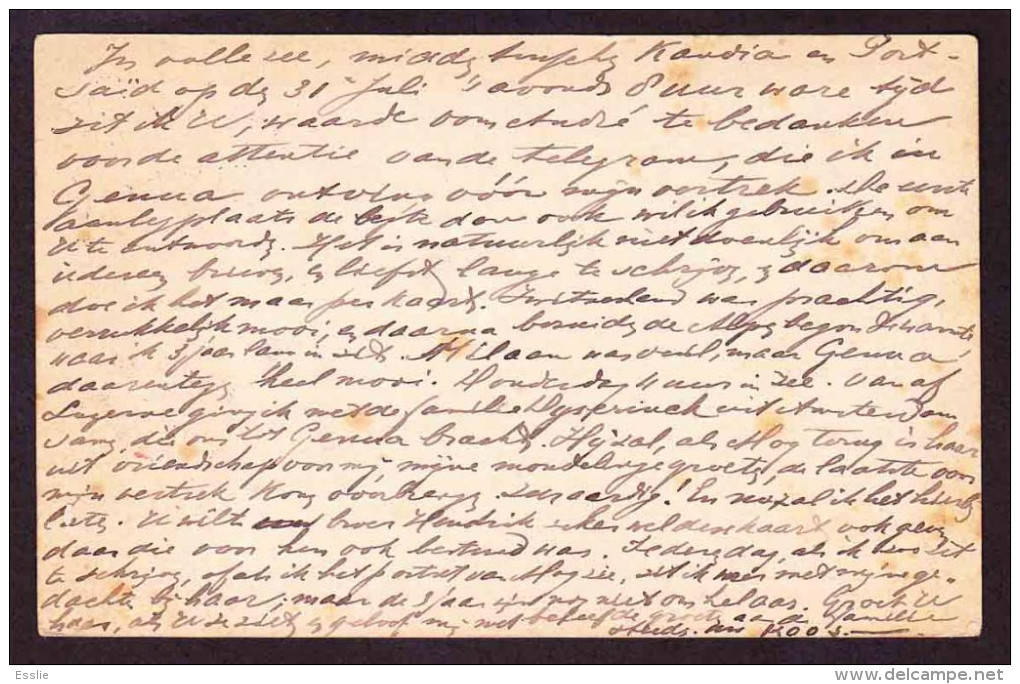 In volle zee, midden tusschen Kandia en Port-
Saïd op den 31n Juli 's avonds 8 uur ware tijd
zit ik U, waarde oom André te bedanken
voor de attentie van de telegram, die ik in
Genua ontving vóór mijn vertrek. De eerste
aanlegplaats de beste dan ook wil ik gebruiken om
U te antwoorden. Het is natuurlijk niet doenlijk om aan
iedereen brieven, en liefst lange te schrijven, en daarom
doe ik het maar per kaart. Zwitserland was prachtig,
verrukkelijk mooi, en daarna beneden de Alpen begon de warmte,
waar ik 3 jaar lang in zit. Milaan was vuil, maar Genua
daarentegen heel mooi. Donderdag 4 uur in zee. Van af
Luzerne ging ik met de familie uit Amsterdam
samen die ons tot Genua bracht. Hij zal, als Moy terug is haar
uit vriendschap voor mij mijne mondelinge groeten, de laatste voor
mijn vertrek komen overbrengen. Zeer aardig! En nu zal ik het hierbij
laten. U wilt broer Hendrik zeker wel deze kaart ook geven
daar die voor hen ook bestemd was. Iedere dag als ik zoo zit
te schrijven, of als ik het portret van Moy zie, zit ik weer met mijne ge-
dachten bij haar; maar de 3 jaar zijn nog niet om helaas. Groet U
haar, als U ze ziet en geloof mij met beleefde groeten aan de familie
Uw Koos.
Esslie
www.delcampe.net